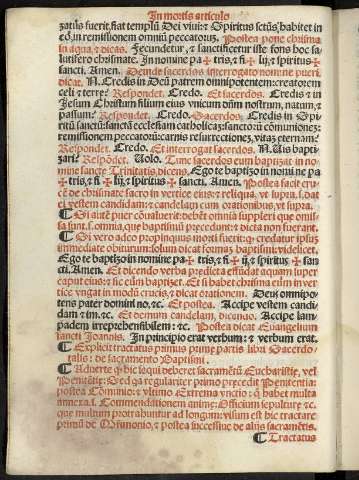 In mortis articulo
zatus fuerit, fiat templũ Dei viui: ⁊ Spiritus sctũs habitet in
eo, in remissionem omniũ peccatorũ. Postea pone chrisma
in aqua, ⁊ dicas. Fecundetur, ⁊ sanctificetur iste fons hoc sa
lutifero chrismate. In nomine pa ✠ tris, ⁊ fi ✠ lij, ⁊ spiritus ✠
sancti. Amen. Deinde sacerdos interrogato nomine pueri,
dicat. N. Credis in Deũ patrem omnipotentem: creatorem
celi ⁊ terre? Respondet. Credo. Et sacerdos. Credis ⁊ in
Jesum Christum filium eius vnicum dñm nostrum, natum, ⁊
passum? Respondet. Credo. Sacerdos. Credis in Spi
ritũ sanctũ: sanctã ecclesiam catholicã: sanctorũ cõmunionem:
remissionem peccatorũ: carnis resurrectionem, vitaz eternam?
Respondet. Credo. Et interrogat sacerdos. N. Uis bapti
zari? Respõdet. Uolo. Tunc sacerdos eum baptizat in no
mine sancte Trinitatis, dicens. Ego te baptizo in nomine pa
✠ tris, ⁊ fi ✠ lij, ⁊ spiritus ✠ sancti. Amen. Postea facit cru
cẽ de chrismate sacro in vertice eius: ⁊ reliqua, vt supra. ⁊ dat
ei vestem candidam: ⁊ candelam cum orationibus, vt supra.
¶ Si autẽ puer cõualuerit: debẽt omnia suppleri que omis
sa sunt. s. omnia, que baptismũ precedunt: ⁊ dicta non fuerant.
¶ Si vero adeo propinquus morti fuerit, ꝙ credatur ipsius
immediate obiturum: solum dicat formaz baptismi: videlicet.
Ego te baptizo in nomine pa ✠ tris, ⁊ fi ✠ lij, ⁊ spiritus ✠ san
cti. Amen. Et dicendo verba predicta effũdat aquam super
caput eius, ⁊ sic eũm baptizet. Et si habet chrisma eũm in ver
tice vngat in modũ crucis, ⁊ dicat orationem. Deus omnipo
tens pater domini no. ⁊c. Et postea. Accipe vestem candi
dam ⁊ im. ⁊c. Et demum candelam, dicendo. Accipe lam
padem irreprehensibilem: ⁊c. Postea dicat Euangelium
sancti Joannis. In principio erat verbum: ⁊ verbum erat.
¶ Explicit tractatus primus prime partis libri Sacerdo-
talis: de sacramento Baptismi.
¶ Aduerte ꝙ hic sequi deberet sacramẽtũ Eucharistie, vel
Penitẽtie: Sed qa regulariter primo precedit Penitentia:
postea Communio: ⁊ vltimo Extrema vnctio: ꝗ habet multa
annexa. s. Commendationem anime: Officium sepulture ⁊c.
que multum protrabuntur ad longum: visum est hic tractare
primũ de Matrimonio, ⁊ postea successiue de alijs sacramẽtis.
¶ Tractatus